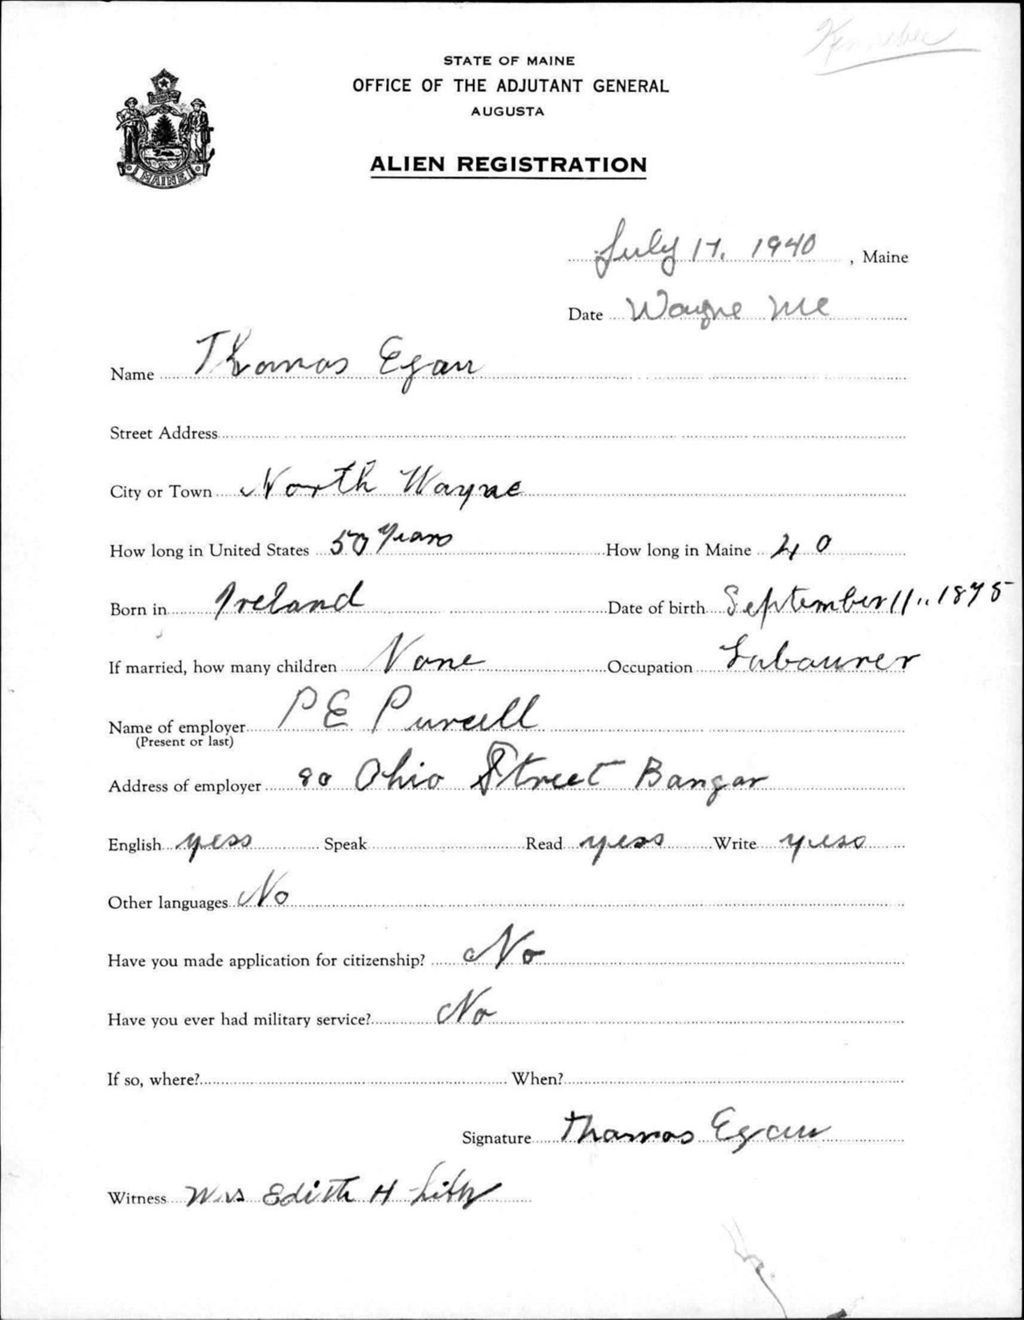 Kennebec
STATE OF MAINE
OFFICE OF THE ADJUTANT GENERAL
AUGUSTA
MAINE
ALIEN REGISTRATION
July 17, 1940, Maine
Date Wayne Me
Name Thomas Egan
Street Address
City or Town North Wayne
How long in United States 50 Years How long in Maine 40
Born in Ireland Date of birth September 11, 1875
If married, how many children None Occupation Labourer
Name of employer P E Purcell
(Present or last)
Address of employer 80 Ohio Street Bangor
English yess Speak Read yess Write yess
Other languages No
Have you made application for citizenship? No
Have you ever had military service? No
If so, where? When?
Signature Thomas Egan
Witness Mrs Edith H